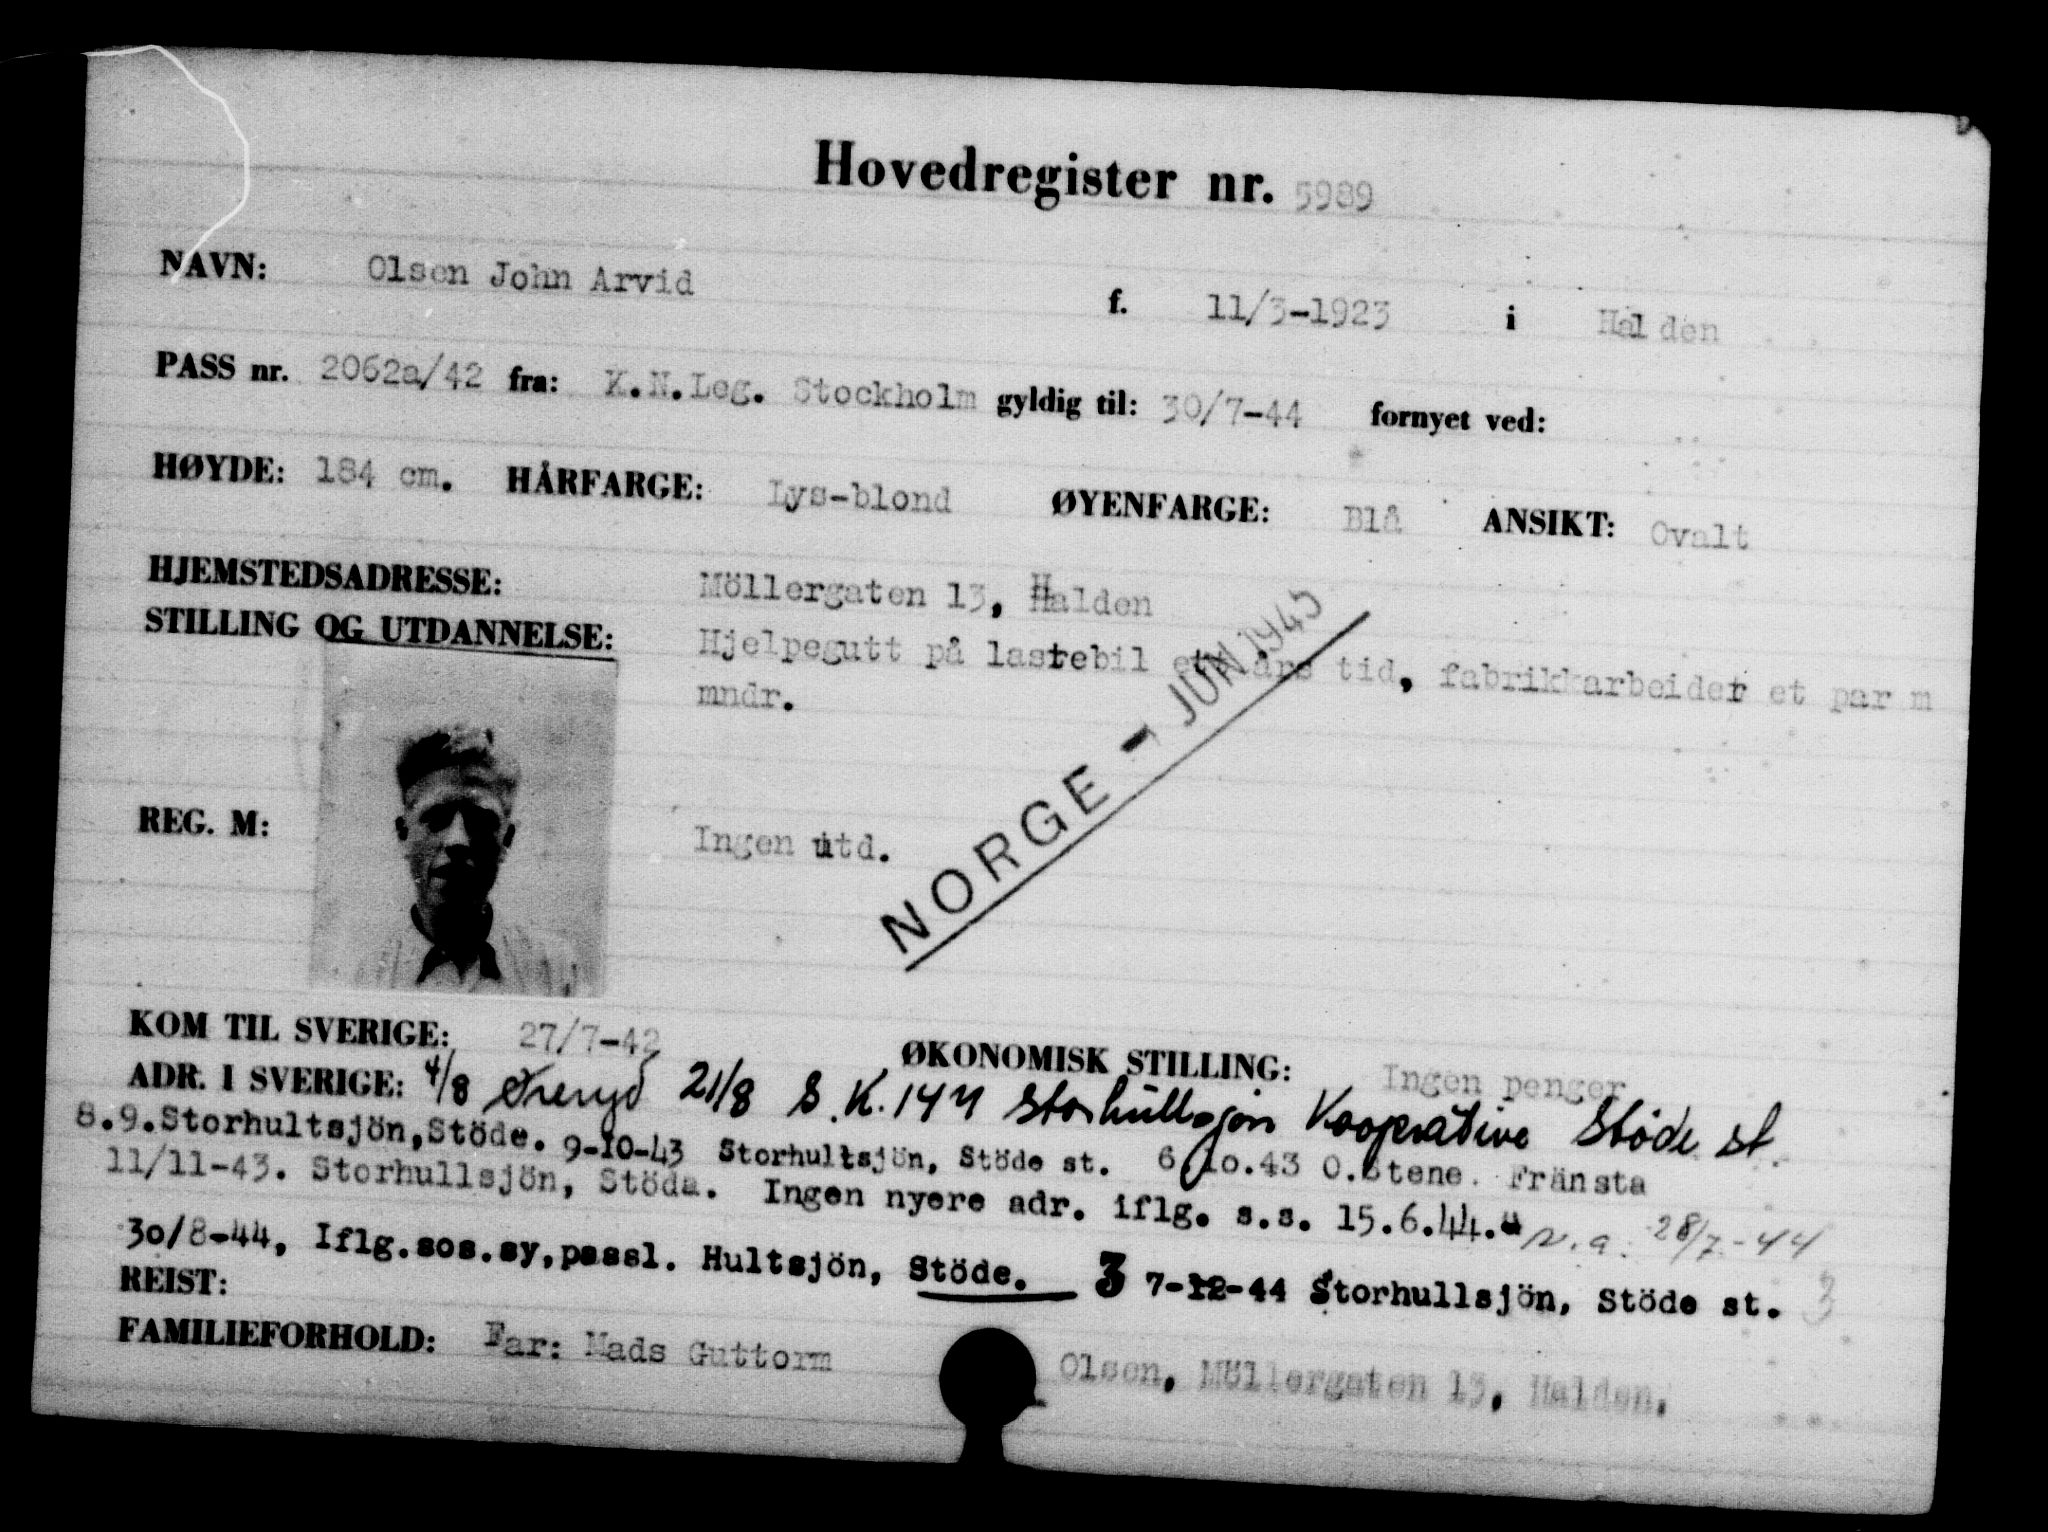 Hovedregister nr. 5989
NAVN: Olsen John Arvid f. 11/3-1923 i Halden
PASS nr. 2062a/42 fra: K.N.Leg. Stockholm gyldig til: 30/7-44 fornyet ved:
HØYDE: 184 cm. HÅRFARGE: Lys-blond ØYENFARGE: Blå ANSIKT: Ovalt
HJEMSTEDSADRESSE: Möllergaten 13, Halden
STILLING OG UTDANNELSE: Hjelpegutt på lastebil ett års tid, fabrikkarbeider et par m
mndr.
NORGE - JUN 1945
REG. M: Ingen utd.
KOM TIL SVERIGE: 27/7-42 ØKONOMISK STILLING: Ingen penger
ADR. I SVERIGE: 4/8 Øreryd 21/8 S.K. 144 Storhullsjön Kooperative Stöde st
8.9.Storhultsjön,Stöde. 9-10-43 Storhultsjön, Stöde st. 6.10.43 O.Stene. Fränsta
11/11-43. Storhullsjön, Stöda. Ingen nyere adr. iflg. s.s. 15.6.44." n.a. 28/7-44
30/8-44, Iflg.sos.sy,passl. Hultsjön, Stöde. 3 7-12-44 Storhullsjön, Stöde st. 3
REIST:
FAMILIEFORHOLD: Far: Mads Guttorm Olsen, Möllergaten 13, Halden.